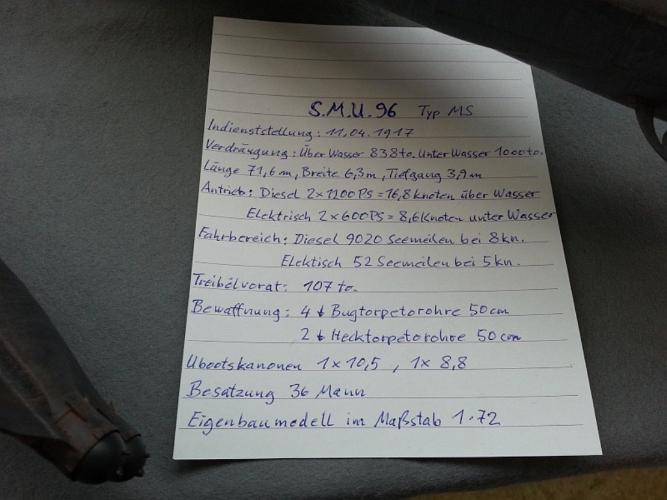 S.M.U. 96 Typ MS
Indienststellung: 11.04.1917
Verdrängung: Über Wasser 838 to. Unter Wasser 1000 to.
Länge 71,6 m, Breite 6,3 m, Tiefgang 3,9 m
Antrieb: Diesel 2x1200 PS = 16,8 knoten über Wasser
Elektrisch 2x600 PS = 8,6 Knoten unter Wasser
Fahrbereich: Diesel 9020 Seemeilen bei 8 kn.
Elektisch 52 Seemeilen bei 5 kn.
Treibölvorat: 107 to.
Bewaffnung: 4 Bugtorpetorohre 50 cm
2 Hecktorpetorohre 50 cm
Ubootskanonen 1x10,5, 1x 8,8
Besatzung 36 Mann
Eigenbaumodell im Maßstab 1.72